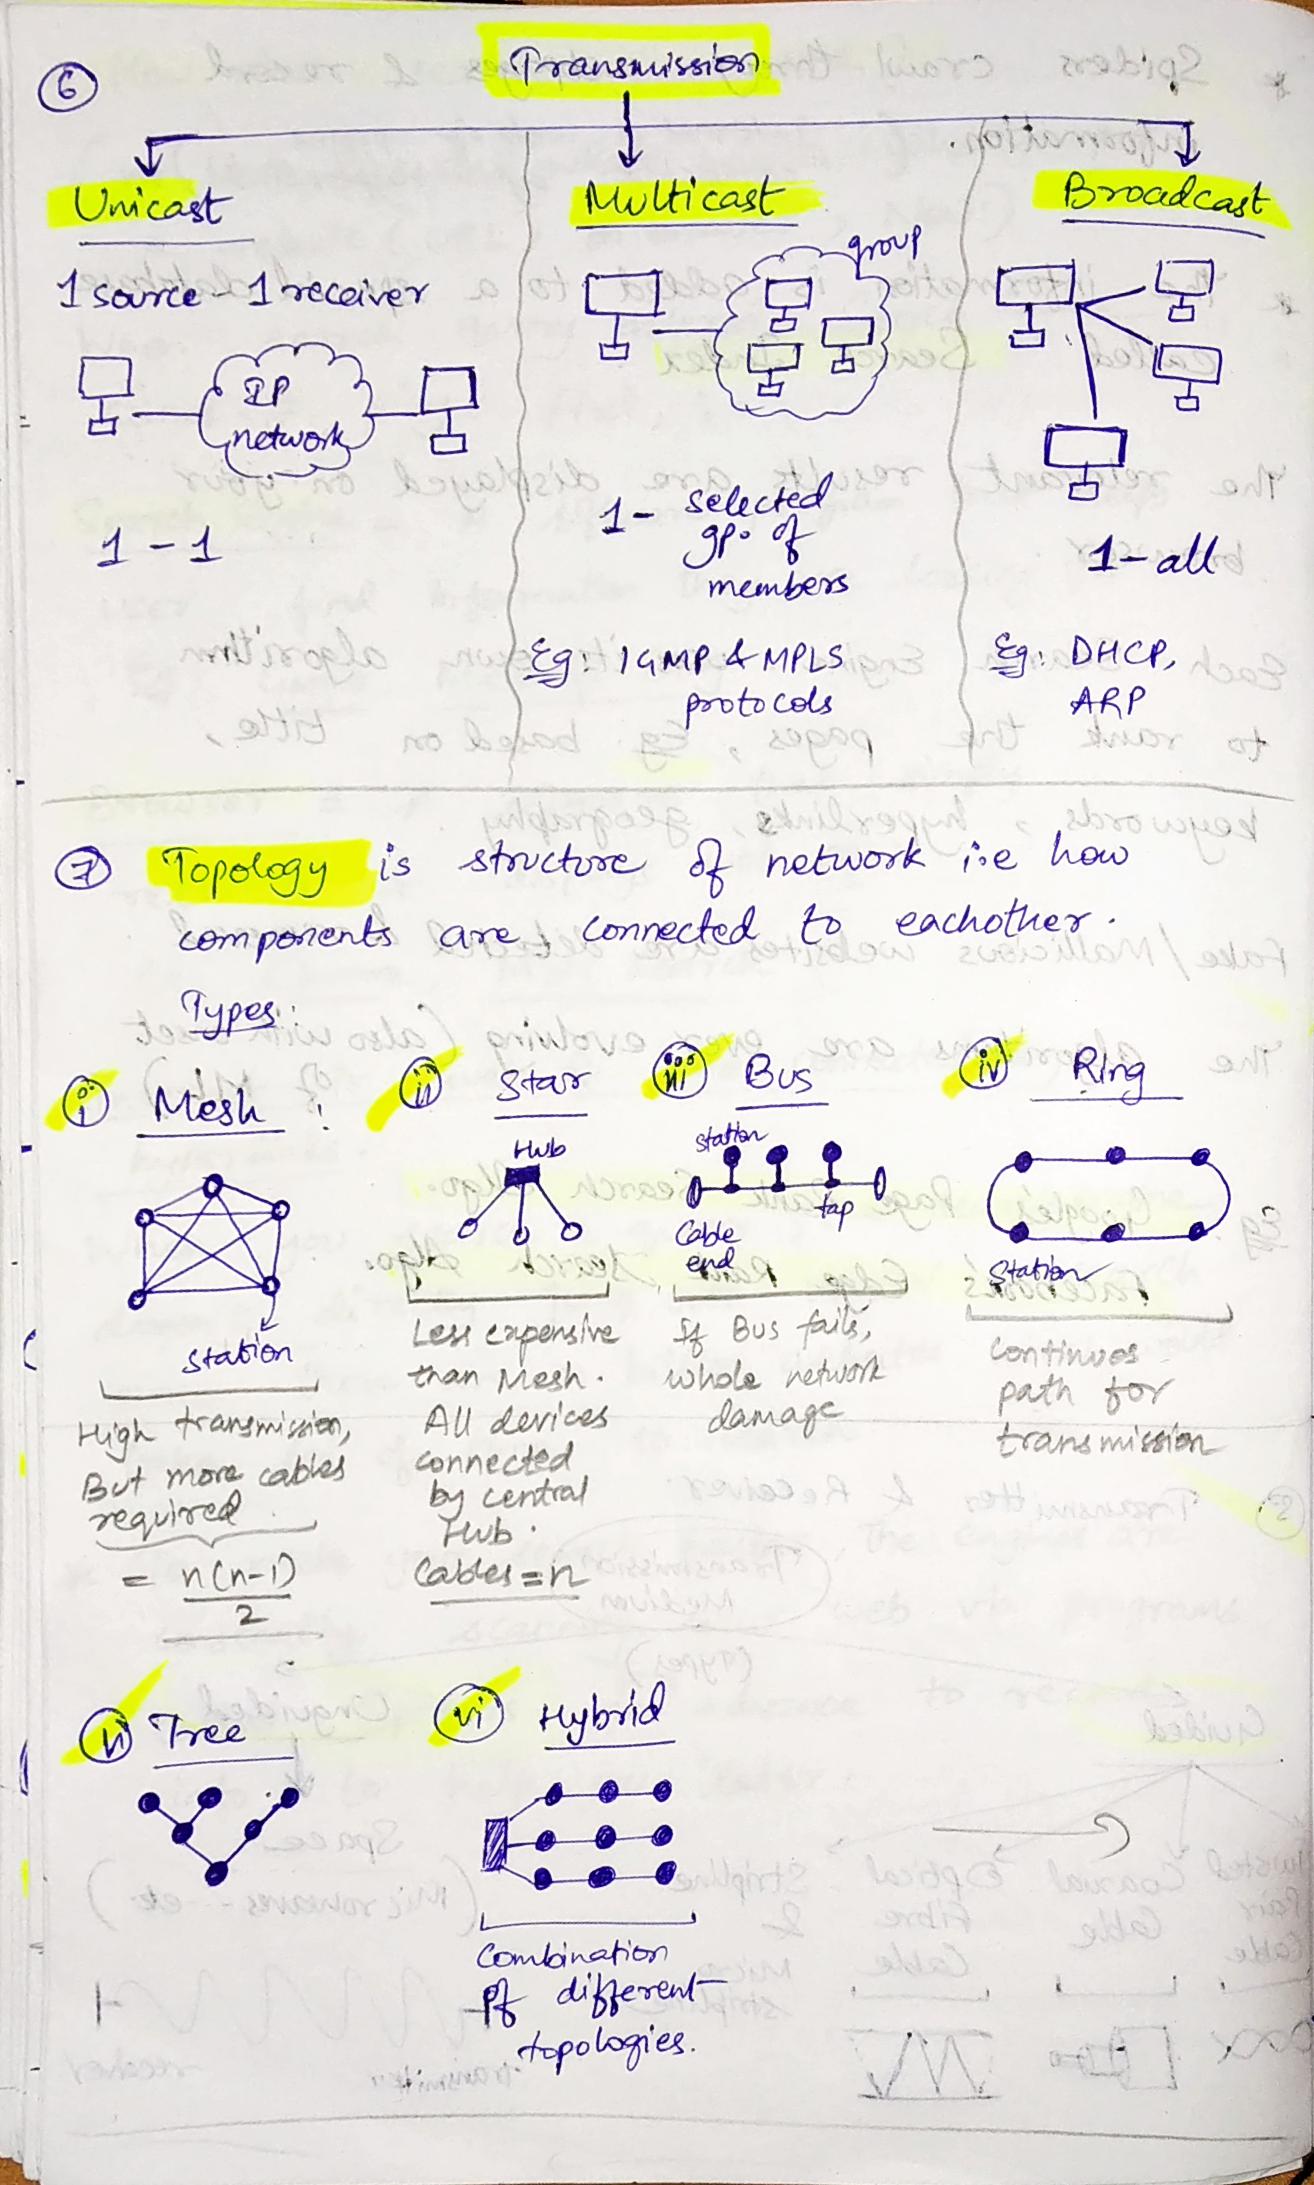 6
Transmission
Unicast
1 source - 1 receiver
IP
network
1 - 1
Multicast
group
1 - selected
gp. of
members
Eg: IGMP & MPLS
protocols
Broadcast
1 - all
Eg: DHCP,
ARP
7 Topology is structure of network i.e how
components are connected to eachother.
Types:
i Mesh :
station
High transmission,
But more cables
required
= n(n-1)
2
ii Star
Hub
Less expensive
than Mesh.
All devices
connected
by central
Hub.
Cables = n
iii Bus
station
tap
Cable
end
If Bus fails,
whole network
damage
iv Ring
Station
Continuos
path for
transmission
v Tree
vi Hybrid
Combination
of different
topologies.